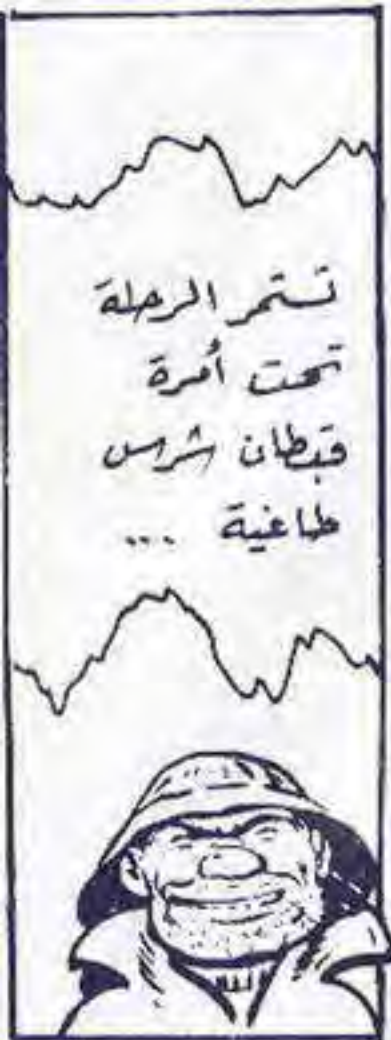 تستمر الرحلة
تحت أمرة
قبطان شرس
طاغية ...